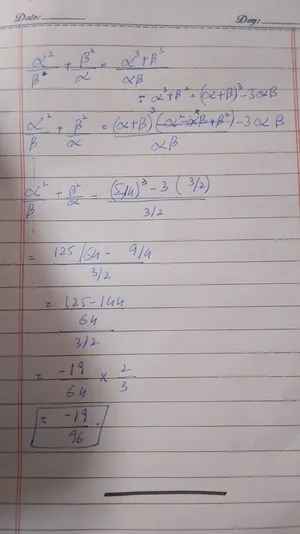 Date: Day:
α²/β² + β²/α = α³+β³/αβ
∵ α³+β² = (α+β)³ - 3αβ
α²/β + β²/α = (α+β)³ (α² - αβ + β²) - 3αβ/αβ
α²/β + β²/α = (5/4)³ - 3 (3/2)/3/2
= 125/64 - 9/4/3/2
= 125-144/64/3/2
= -19/64 × 2/3
= -19/96.